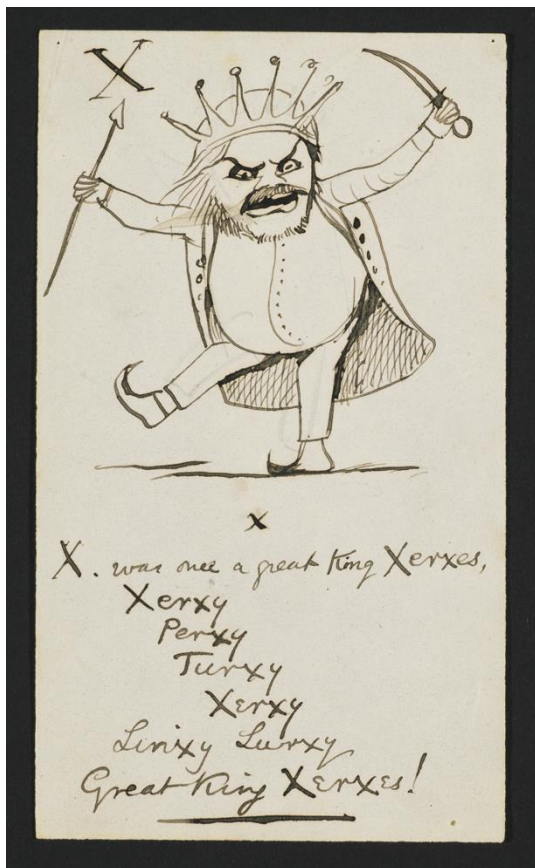 X
x
X. was once a great King Xerxes,
Xerxy
Perxy
Turxy
Xerxy
Linxy Lurxy
Great King Xerxes!